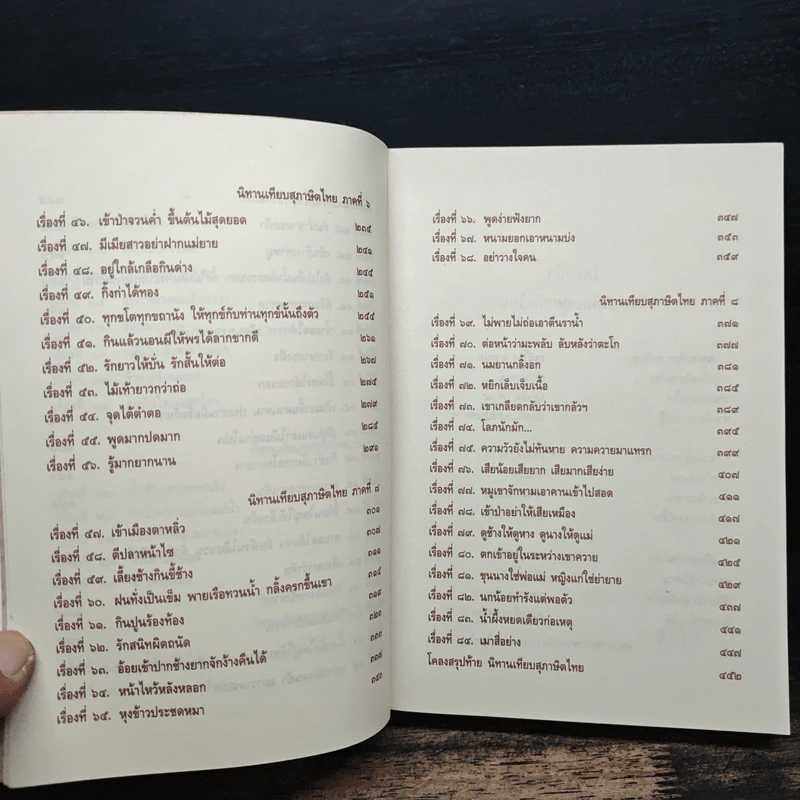 นิทานเทียบสุภาษิตไทย ภาคที่ ๖
เรื่องที่ ๔๖. เข้าป่าจวนค่ำ ขึ้นต้นไม้สุดยอด ๒๓๕
เรื่องที่ ๔๗. มีเมียสาวอย่าฝากแม่ยาย ๒๔๑
เรื่องที่ ๔๘. อยู่ใกล้เกลือกินด่าง ๒๔๕
เรื่องที่ ๔๙. กิ้งก่าได้ทอง ๒๕๑
เรื่องที่ ๕๐. ทุกขโตทุกขถานัง ให้ทุกข์กับท่านทุกข์นั้นถึงตัว ๒๕๕
เรื่องที่ ๕๑. กินแล้วนอนผีให้พรได้ลากขากดี ๒๖๑
เรื่องที่ ๕๒. รักยาวให้บั่น รักสั้นให้ต่อ ๒๖๗
เรื่องที่ ๕๓. ไม้เท้ายาวกว่าถ่อ ๒๗๕
เรื่องที่ ๕๔. จุดไต้ตำตอ ๒๗๙
เรื่องที่ ๕๕. พูดมากปดมาก ๒๘๕
เรื่องที่ ๕๖. รู้มากยากนาน ๒๙๑
นิทานเทียบสุภาษิตไทย ภาคที่ ๗
เรื่องที่ ๕๗. เข้าเมืองตาหลิ่ว ๓๐๑
เรื่องที่ ๕๘. ตีปลาหน้าไซ ๓๐๗
เรื่องที่ ๕๙. เลี้ยงช้างกินขี้ช้าง ๓๑๑
เรื่องที่ ๖๐. ฝนทั่งเป็นเข็ม พายเรือทวนน้ำ กลิ้งครกขึ้นเขา ๓๑๕
เรื่องที่ ๖๑. กินปูนร้องท้อง
เรื่องที่ ๖๒. รักสนิทผิดถนัด
เรื่องที่ ๖๓. อ้อยเข้าปากช้างยากจักง้างคืนได้
เรื่องที่ ๖๔. หน้าไหว้หลังหลอก
เรื่องที่ ๖๕. หุงข้าวประชดหมา
เรื่องที่ ๖๖. พูดง่ายฟังยาก ๓๔๗
เรื่องที่ ๖๗. หนามยอกเอาหนามบ่ง ๓๕๓
เรื่องที่ ๖๘. อย่าวางใจคน ๓๕๙
นิทานเทียบสุภาษิตไทย ภาคที่ ๘
เรื่องที่ ๖๙. ไม่พายไม่ถ่อเอาตีนราน้ำ ๓๗๑
เรื่องที่ ๗๐. ต่อหน้าว่ามะพลับ ลับหลังว่าตะโก ๓๗๗
เรื่องที่ ๗๑. นมยานกลิ้งอก ๓๘๑
เรื่องที่ ๗๒. หยิกเล็บเจ็บเนื้อ ๓๘๕
เรื่องที่ ๗๓. เขาเกลียดกลับว่าเขากลัวฯ ๓๘๙
เรื่องที่ ๗๔. โลภนักมัก... ๓๙๕
เรื่องที่ ๗๕. ความวัวยังไม่ทันหาย ความควายมาแทรก ๓๙๙
เรื่องที่ ๗๖. เสียน้อยเสียยาก เสียมากเสียง่าย ๔๐๗
เรื่องที่ ๗๗. หมูเขาจักหามเอาคานเข้าไปสอด ๔๑๑
เรื่องที่ ๗๘. เข้าป่าอย่าให้เสียเหมือง ๔๑๗
เรื่องที่ ๗๙. ดูช้างให้ดูหาง ดูนางให้ดูแม่ ๔๒๑
เรื่องที่ ๘๐. ตกเข้าอยู่ในระหว่างเขาควาย ๔๒๕
เรื่องที่ ๘๑. ขุนนางใช่พ่อแม่ หญิงแก่ใช่ย่ายาย ๔๒๙
เรื่องที่ ๘๒. นกน้อยทำรังแต่พอตัว ๔๓๗
เรื่องที่ ๘๓. น้ำผึ้งหยดเดียวก่อเหตุ ๔๔๑
เรื่องที่ ๘๔. เมาสี่อย่าง ๔๔๗
โคลงสรุปท้าย นิทานเทียบสุภาษิตไทย ๔๕๒